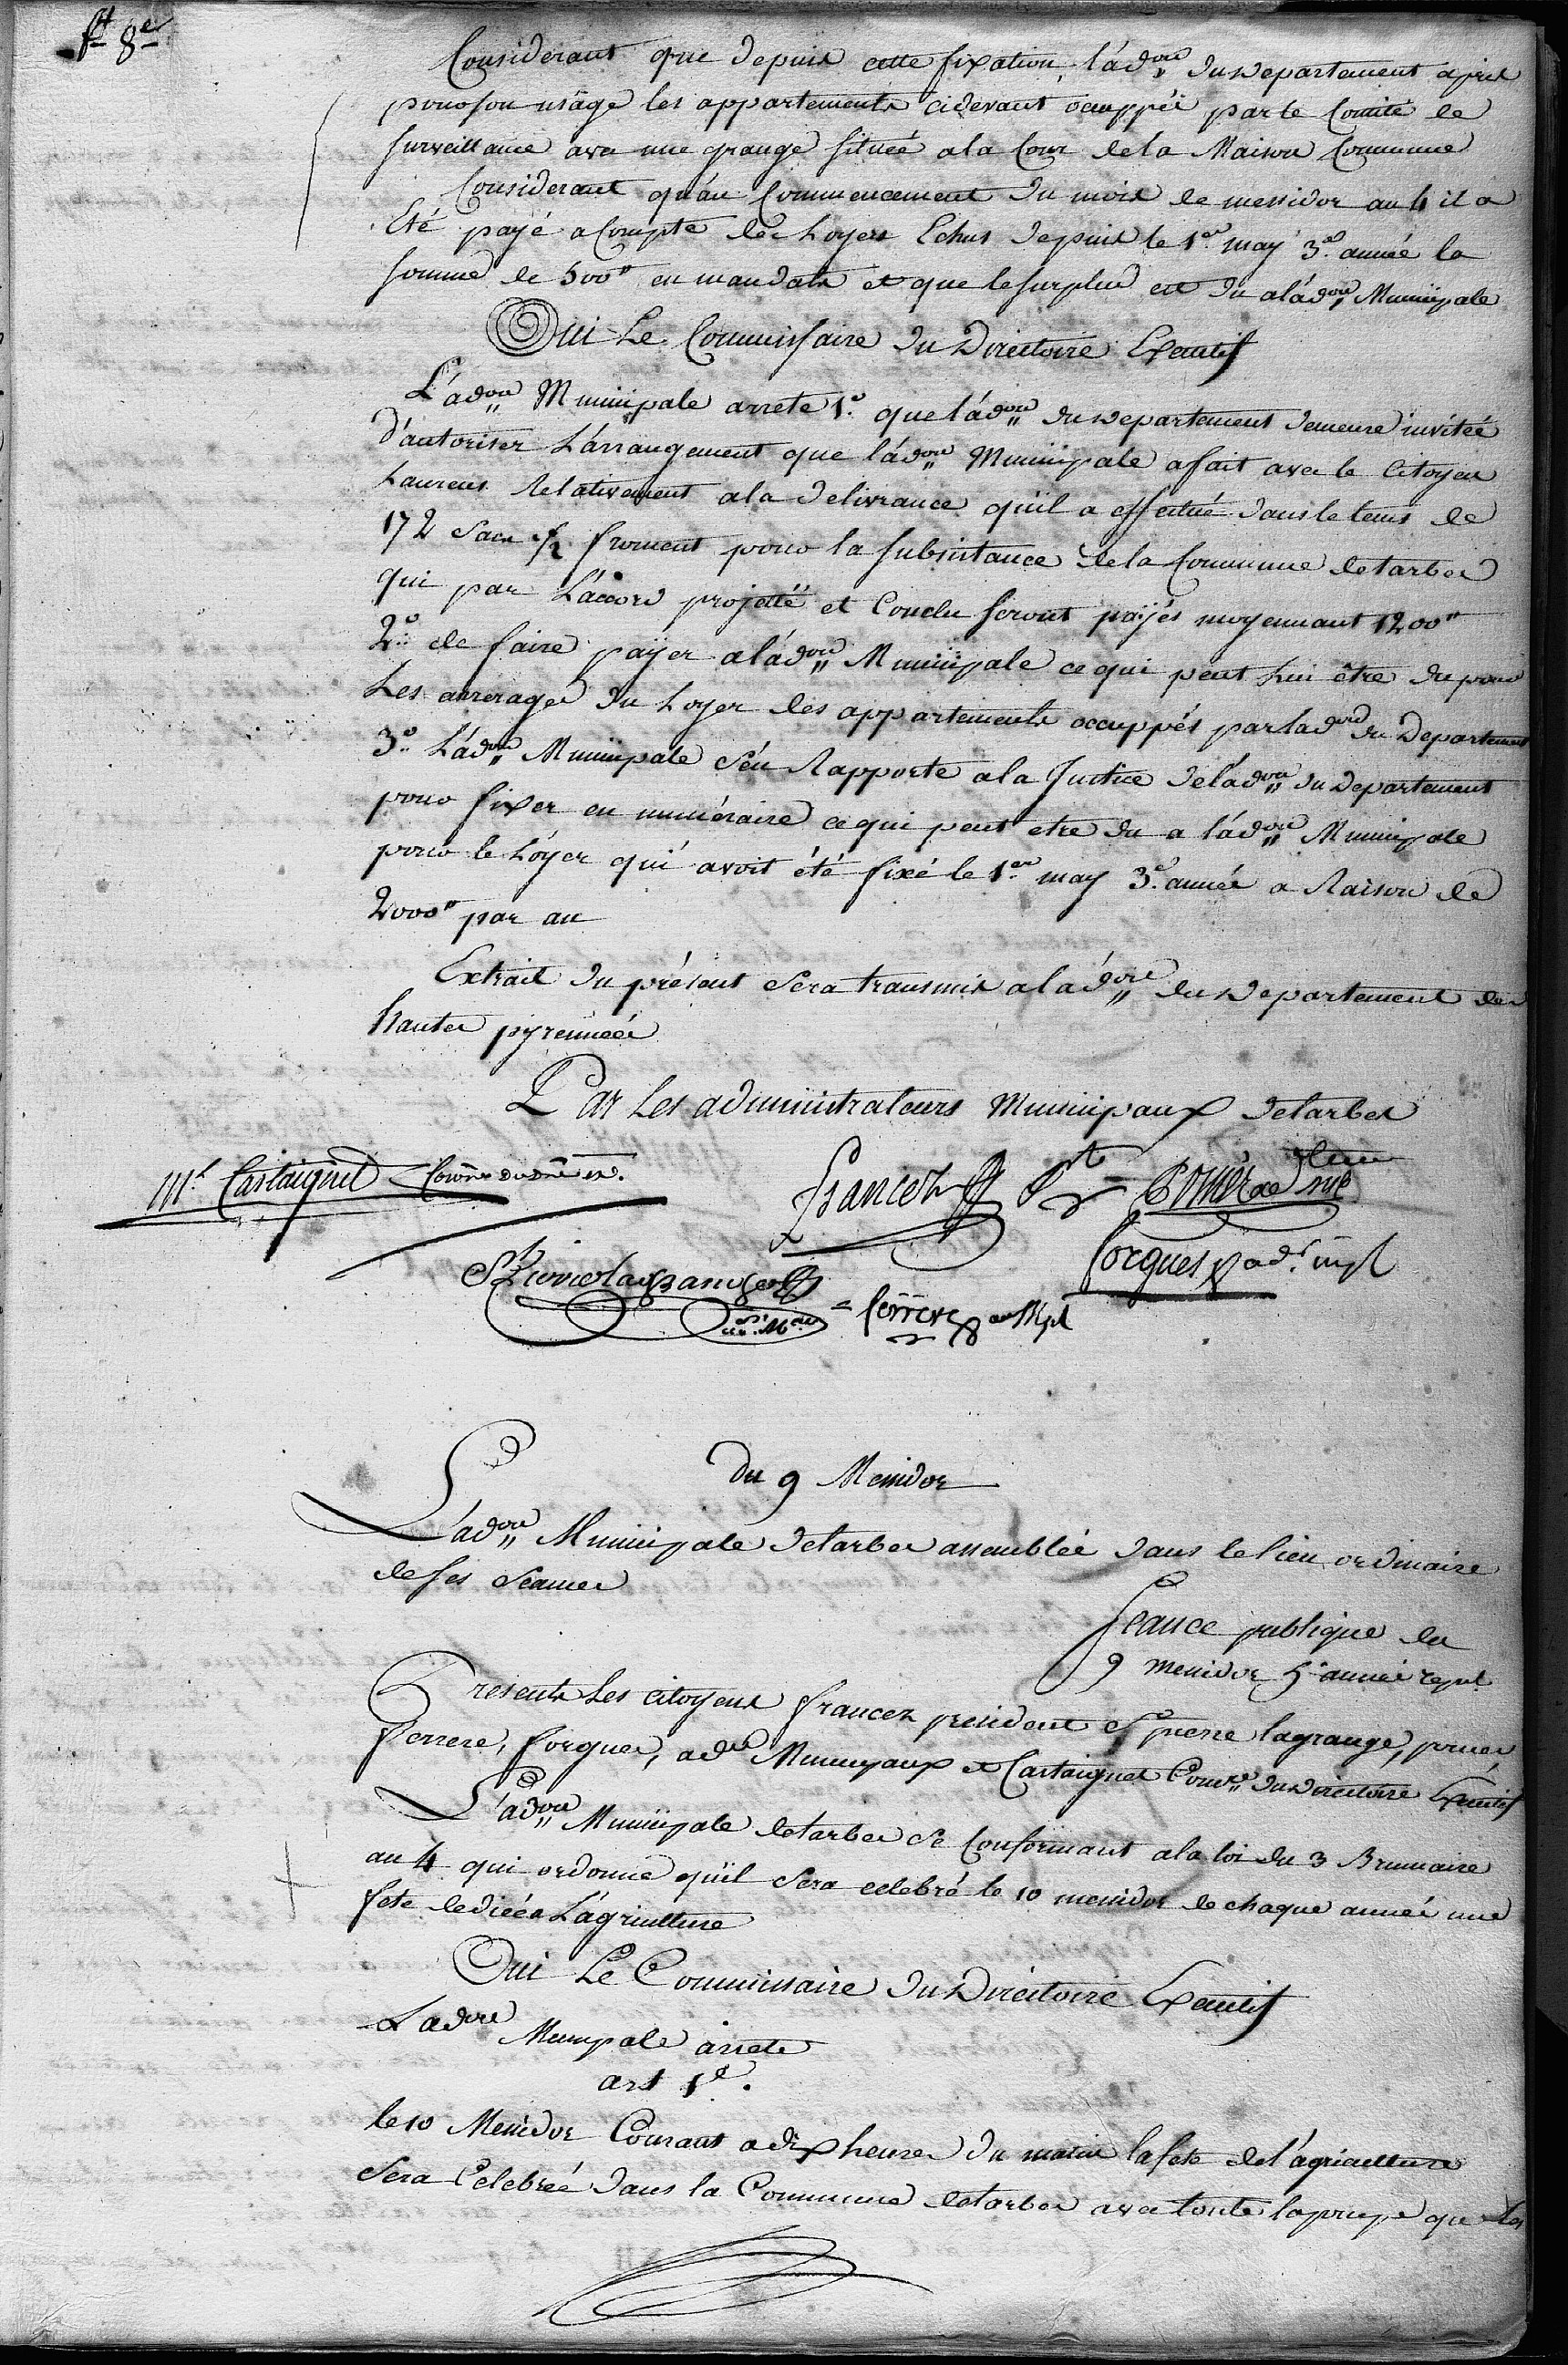 ft 8e
Considerant que depuis cette fixation, l'adon du Departement a pris
pour son usage les appartements cidevant occuppés par le Comité de
surveillance avec une grange située a la Cour de la Maison Commune
Considerant qu'au Commencement du mois de messidor an 4 il a
Eté payé a Compte des Loyers Echus depuis le 1er may 3e année la
somme de 500# en mandats et que le surplus est du a l'adon Municipale
Oui Le Commissaire du Directoire Executif
L'adon Municipale arrete 1o que l'adon du Departement demeure invitée
d'autoriser L'arrangement que l'adon Municipale a fait avec le Citoyen
Laurens Relativement a la delivrance qu'il a effectué dans le tems de
172 Sacs 1/2 froment pour la subsistance de la Commune de tarbes
qui par L'accord projetté et Conclu seront payés moyennant 1200#
2o de faire payer a l'adon Municipale ce qui peut Lui être du pour
Les arrerages du Loyer des appartements occuppés par ladon du Departement
3o L'adon Municipale s'en Rapporte a la Justice de l'adon du Departement
pour fixer en numéraire ce qui peut etre du a l'adon Municipale
pour le Loyer qui avoit été fixé le 1er may 3e année a Raison de
2000# par an
Extrait du présent sera transmis a l'adon du Departement des
hautes pyrennées
Par Les administrateurs Municipaux de tarbes
Castaignet
francez Pt
forgues adr mpl
St pierre lagrange
ferrere
du 9 Messidor
L'adon Municipale de tarbes assemblée dans le lieu ordinaire
de ses séances
Seance publique du
9 messidor 5e année repl
Presents Les citoyens francez president St pierre lagrange, pomés
ferrere, forgues, adrs Municipaux et Castaignet Comre du Directoire Executif
L'adon Municipale de tarbes se Conformant a la loi du 3 Brumaire
an 4 qui ordonne qu'il sera celebré le 10 messidor de chaque année une
fete dediée a L'agriculture
Oui Le Commissaire du Directoire Executif
L'adon Municipale arrete
art 1er.
le 10 Messidor Courant a dix heures du matin la fete de l'agriculture
sera Celebrée dans la Commune de tarbes avec toute la pompe que les